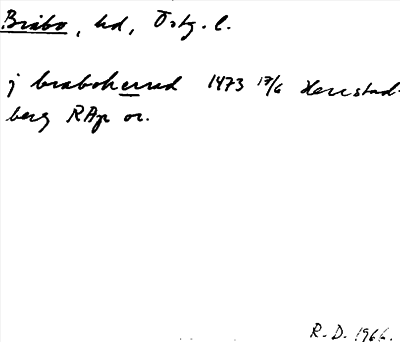 Bråbo, hd, Östg. l.
j braboherrad 1473 17/6 Herrestad-
berg RAp or.
R. D. 1966.